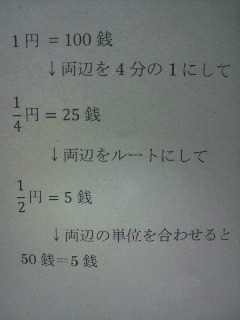 1円 = 100 銭
↓両辺を4分の1にして
1/4 円 = 25 銭
↓両辺をルートにして
1/2 円 = 5 銭
↓両辺の単位を合わせると
50 銭=5 銭